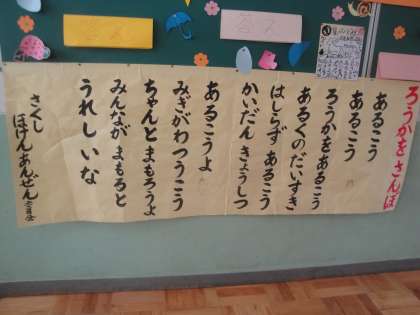 ろうかを さんぽ
あるこう
あるこう
ろうかをあるこう
あるくのだいすき
はしらず あるこう
かいだん きょうしつ
あるこうよ
みぎがわつうこう
ちゃんと まもろうよ
みんなが まもると
うれしいな
さくし
ほけんあんぜん